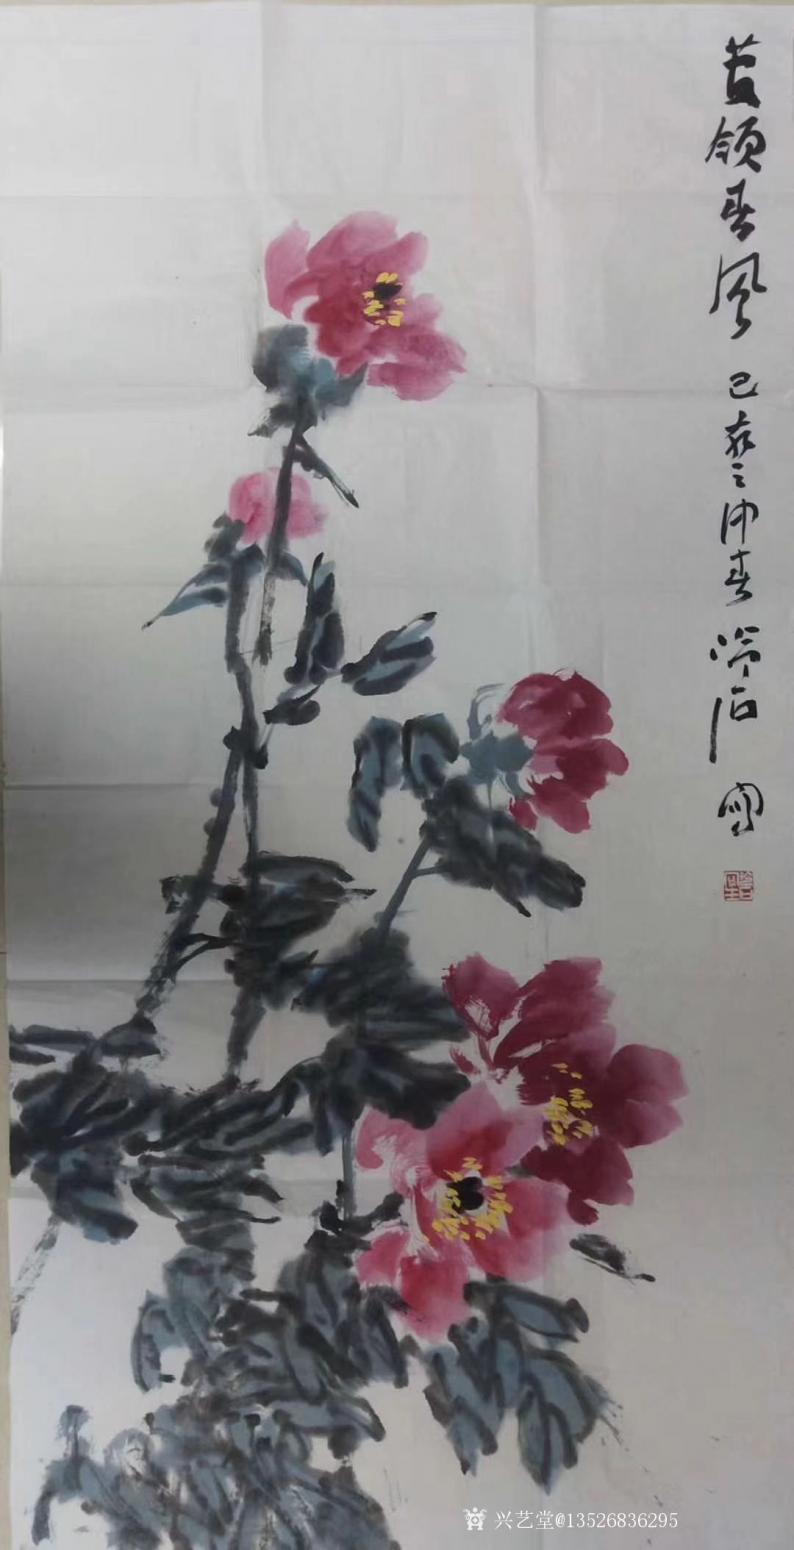 首领春风 己亥之仲春 石 写
兴艺堂@13526836295